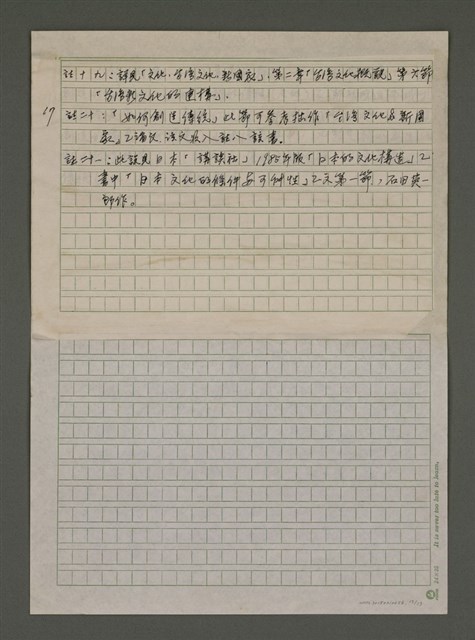 註十九：詳見「文化‧台灣文化‧新國家」；第二章「台灣文化概觀」第六節
「台灣新文化的建構」.
67
註二十：「如何創造傳統」此節可參考拙作「台灣文化與新國
家」之論文，該文收入註八該書.
註二十一：此說見日本「講談社」1985年版「日本的文化構造」之
書中「日本文化的條件與可能性」之文第一節，石田英一
郎作。